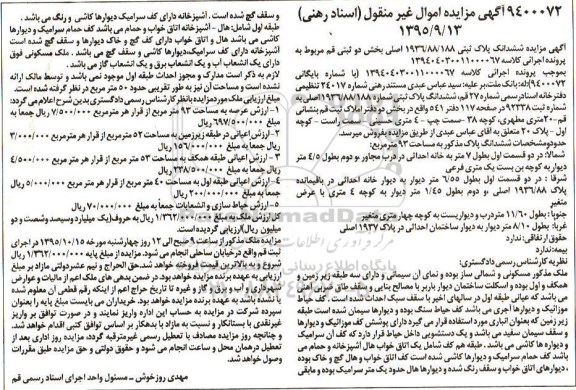 ۹۴۰۰۰۷۲ آگهی مزایده اموال غیر منقول (اسناد رهنی)
۱۳۹۵/۹/۱۳
آگهی مزایده ششدانگ پلاک ثبتی ۱۹۳۶/۸۸/۱۸۸ اصلی بخش دو ثبتی قم مربوط به
پرونده اجرائی کلاسه ۱۳۹۴۰۴۰۳۰۰۱۱۰۰۰۰۶۷
بموجب پرونده اجرائی کلاسه ۱۳۹۴۰۴۰۳۰۰۱۱۰۰۰۰۶۷ (با شماره بایگانی
۹۴۰۰۰۷۲) له: بانک ملت، بر علیه: سید عباس عبدی مستند رهنی شماره ۲۴۰۱۷ تنظیمی
دفترخانه اسناد رسمی شماره ۲۷ قم، ششدانگ پلاک ثبتی شماره ۱۹۳۶/۸۸/۱۸۸ اصلی به
شماره ثبت ۹۲۳۳۸ صفحه ۱۱۷ دفتر ۵۴۱ واقع در بخش دو دفتر املاک ثبت قم بنشانی
قم-۲۰ متری مطهری، کوچه ۳۸ -سمت چپ - ۴ متری حسینی - سمت راست - کوچه
اول - پلاک ۲۰ متعلق به آقای عباس عبدی از طریق مزایده بفروش میرسد.
حدود و مشخصات ششدانگ پلاک مذکور به مساحت ۹۳ مترمربع:
شمالا: در دو قسمت اول بطول ۷ متر به خانه احداثی در درب مجاور و دوم بطول ۴/۵ متر
دیوار به کوچه بن بست یک متری فرعی
شرقا : در دو قسمت اول بطول ۶/۵۵ متر دیوار به دیوار خانه احداثی در باقیمانده
پلاک ۱۹۳۶/۸۸ اصلی و دوم بطول ۱/۴۵ متر دیوار به کوچه ۴ متری با عرض
متغیر
جنوبا: بطول ۱۱/۶۰ متر درب و دیواریست به کوچه چهار متری متغیر
غربا: بطول ۸/۱۰ متر دیوار به دیوار ساختمان احداثی در پلاک ۱۹۳۷ اصلی
حقوق ارتفاقی: ندارد
بیمه: ندارد
نظریه کارشناس رسمی دادگستری:
ملک مذکور مسکونی و شمالی ساز بوده و نمای آن سیمانی و دارای سه طبقه زیر زمین و
همکف و اول بوده و اسکلت ساختمان دیوار باربر با مصالح بنایی و سقف طاق ضربی
می باشد که عیانی طبقه اول در سالهای اخیر با سقف سبک احداث شده است . کف حیاط
موزائیک و دیوارها آجری می باشد کف حیاط سنگ بوده و دیوارها سیمان شده است طبقه
زیر زمین که بعنوان انباری مورد استفاده قرار می گیرد دارای پوشش کف موزائیک و دیوارها
و سقف سیمان سفید می باشد و یک دستشویی داخل حیاط قرار دارد که کف آن سرامیک
و دیوارها کاشی می باشد . طبقه هم کف شامل یک اتاق خواب هال آشپزخانه و حمام می
باشد کف حمام سرامیک و دیوارها کاشی شده است کف اتاق خواب و هال گچ و خاک بوده
، دیوارهای اتاق خواب و سقف رنگ شده و دیوارها هال حدود یک متر سرامیک بوده و مابقی
و سقف گچ شده است . آشپزخانه دارای کف سرامیک دیوارها کاشی و رنگ می باشد .
طبقه اول شامل: هال - آشپزخانه اتاق خواب و حمام می باشد کف حمام سرامیک و دیوارها
کاشی می باشد هال و اتاق خواب دارای کف گچ و خاک دیوارها و سقف گچ شده است
آشپزخانه دارای کف سرامیک، دیوارها کاشی و سقف گچ می باشد . ملک مسکونی فوق
دارای یک انشعاب آب و یک انشعاب برق و یک انشعاب گاز می باشد .
لازم به ذکر است مدارک و مجوز احداث طبقه اول موجود نمی باشد و توسط مالک ارائه
نشده است و مساحت آن نیز به طور تقریبی حدود ۵۰ متر مربع در نظر گرفته شده است.
مبلغ ارزیابی ملک مورد مزایده بانظر کارشناس رسمی دادگستری بدین شرح اعلام می گردد:
۱- ارزش عرصه به مساحت ۹۳ متر مربع از قرار هر متر مربع ۷/۵۰۰/۰۰۰ ریال جمعا به
مبلغ ۶۹۷/۵۰۰/۰۰۰ ریال
۲- ارزش اعیانی در طبقه زیرزمین به مساحت ۵۲ مترمربع از قرار هر مترمربع ۳/۰۰۰/۰۰۰
ریال جمعا به مبلغ ۱۵۶/۰۰۰/۰۰۰ ریال
۳- ارزش اعیانی طبقه همکف به مساحت ۵۳ متر مربع از قرار هر متر مربع ۴/۵۰۰/۰۰۰
ریال جمعا به مبلغ ۲۳۸/۵۰۰/۰۰۰ ریال
۴- ارزش اعیانی طبقه اول به مساحت ۴۰ متر مربع از قرار هر متر مربع ۵/۰۰۰/۰۰۰ ریال
جمعا به مبلغ ۲۰۰/۰۰۰/۰۰۰ ریال
۵- ارزش حیاط سازی و انشعابات جمعا به مبلغ ۷۰/۰۰۰/۰۰۰ ریال
کل ارزش ملک به مبلغ ۱/۳۶۲/۰۰۰/۰۰۰ ریال به حروف (یک میلیارد وسیصد وشصت و دو
میلیون ریال) ارزیابی گردیده است.
مزایده ملک مذکور از ساعت ۹ صبح الی ۱۲ روز چهارشنبه مورخه ۱۳۹۵/۱۰/۱۵ در اجرای
ثبت قم واقع در خیابان ساحلی انجام می شود. مزایده از مبلغ پایه ۱/۳۶۲/۰۰۰/۰۰۰ ریال
شروع و به بالاترین قیمت فروخته خواهد شد. حق الحراج و نیم عشر دولتی مازاد بر مبلغ
ارزیابی به عهده برنده مزایده بوده و در ضمن بدهی های ملک اعم از مالیات و عوارض
شهرداری آب و برق و گاز و غیره تا تاریخ حراج اعم از اینکه رقم قطعی آن معلوم شده
یا نشده باشد به عهده برنده مزایده خواهد بود. خریداران می بایست مبلغ پایه را بعنوان
سپرده شرکت در مزایده به حساب این اداره واریز نمایند و در صورت توافق بر واریز
غیر نقدی با بستانکار و نسبت به مازاد با بدهکار بر اساس توافق کتبی اقدام خواهد شد.
و چنانچه روز مزایده مصادف با تعطیل رسمی غیر مترقبه گردد، مزایده روز اداری بعد از
تعطیل درهمان محل و ساعت انجام می شود و حقوق دولتی و حق مزایده طبق مقررات
وصول خواهد شد.
مهدی روزخوش - مسئول واحد اجرای اسناد رسمی قم